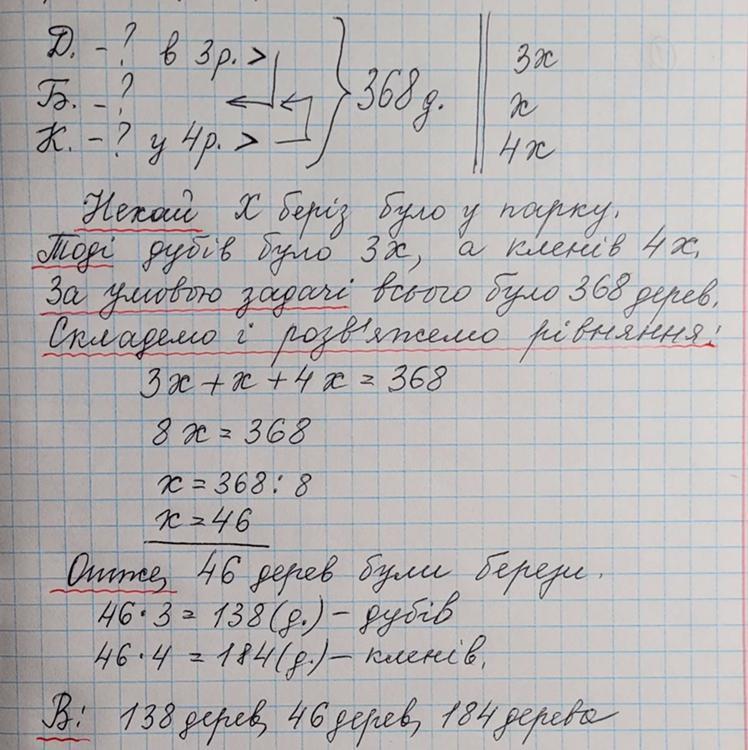 Д. - ? в 3р. > } 368 д. || 3х
Б. - ? х
К. - ? у 4р. > 4х
Нехай Х беріз було у парку.
Тоді дубів було 3х, а кленів 4х.
За умовою задачі всього було 368 дерев.
Складемо і розв'яжемо рівняння:
3х + х + 4х = 368
8х = 368
х = 368 : 8
х = 46
Отже, 46 дерев були берези.
46 · 3 = 138 (д.) - дубів
46 · 4 = 184 (д.) - кленів.
В: 138 дерев, 46 дерев, 184 дерева